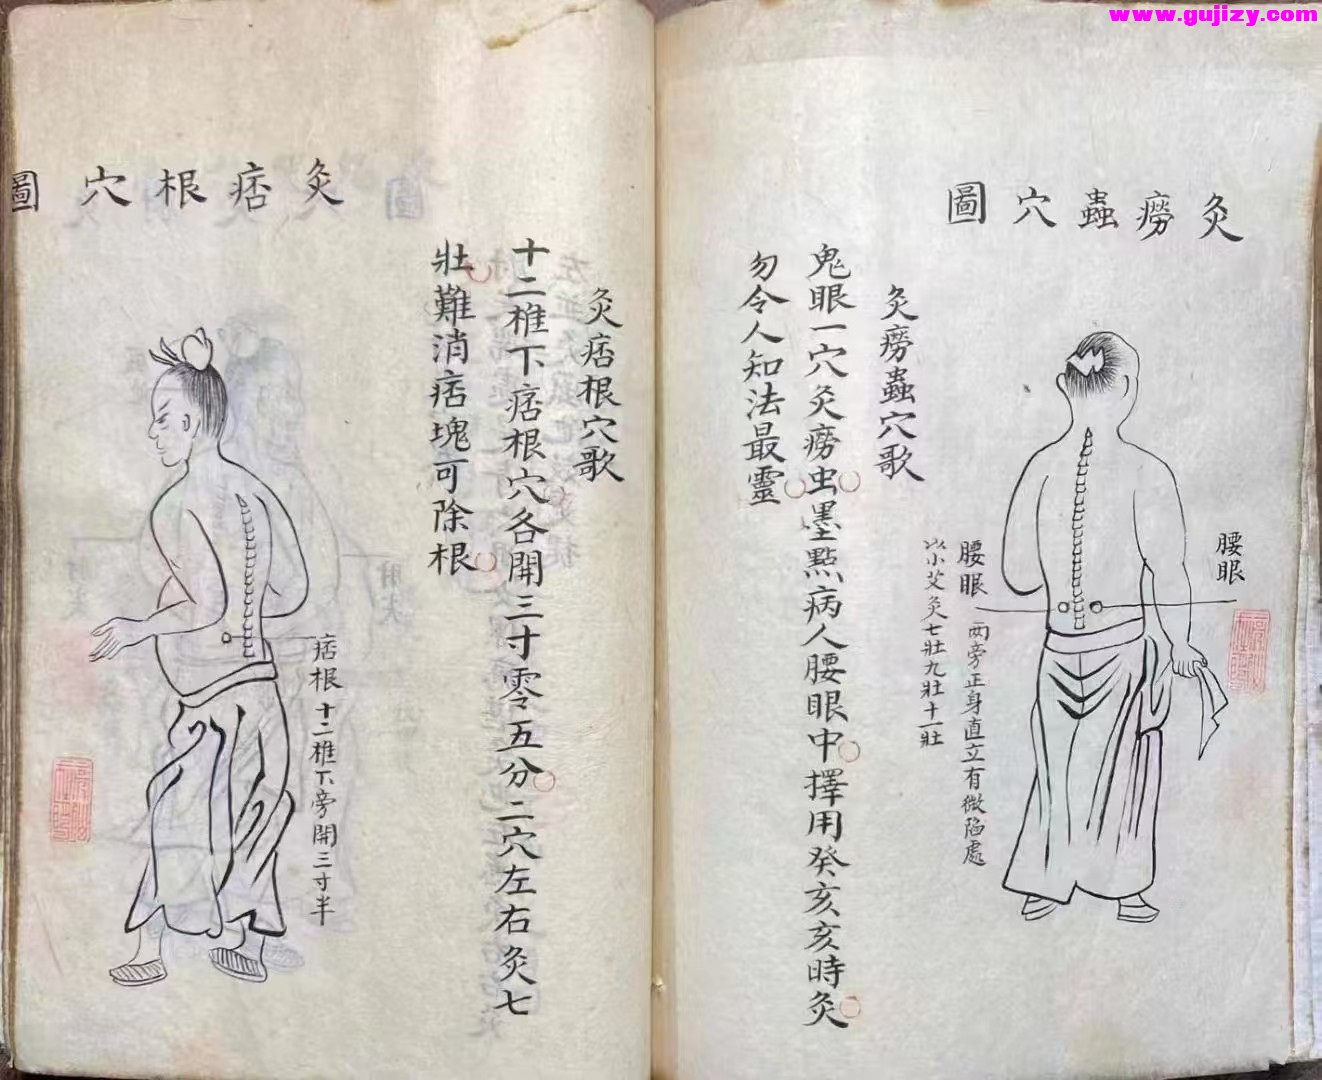 www.gujizy.com
灸癆蟲穴圖
腰眼
腰眼
兩旁正身直立有微陷處
以小艾灸七壯九壯十一壯
灸癆蟲穴歌
鬼眼一穴灸癆虫墨點病人腰眼中擇用癸亥亥時灸
勿令人知法最靈
灸痞根穴圖
灸痞根穴歌
十二椎下痞根穴各開三寸零五分二穴左右灸七
壯難消痞塊可除根
痞根
十二椎下旁開三寸半